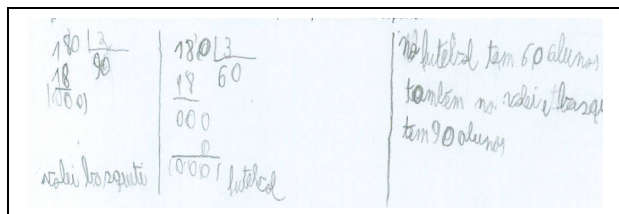 180 | 2
18 90
(000)
volei basquete
180 | 3
18 60
000
0
(000)
futebol
no futebol tem 60 alunos
também no volei e basqu
tem 90 alunos